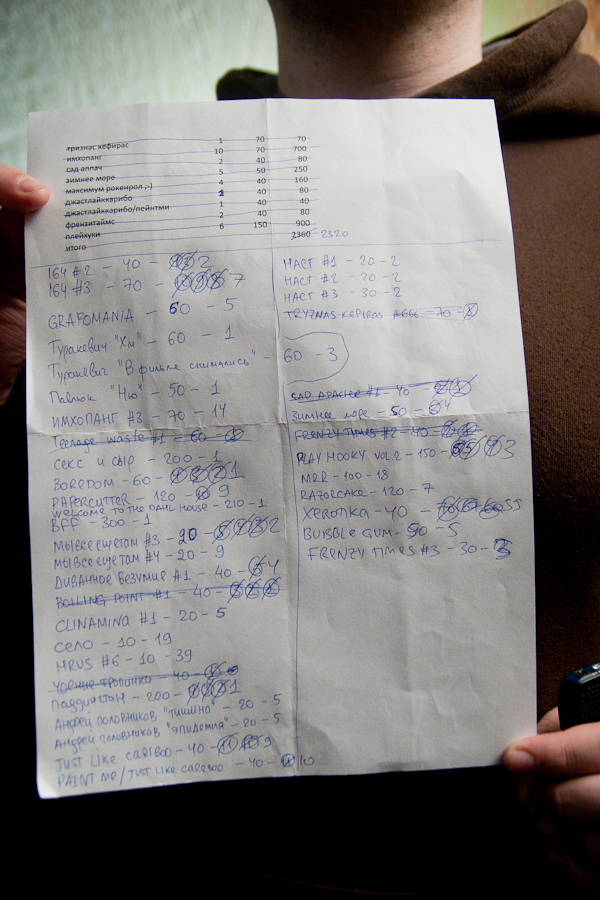 тризнас кефирас 1 70 70
имхопанг 10 70 700
сад апачч 2 40 80
зимнее море 5 50 250
максимум рокенрол ;-) 4 40 160
джастлайккарибо 2 40 80
джастлайккарибо/пейнтми 1 40 40
френзитаймс 2 40 80
плейхуки 6 150 900
итого 2360 2320
164 #2 - 40 - 2
164 #3 - 70 - 7
GRAFOMANIA - 60 - 5
Туракевич "Хм" - 60 - 1
Туракевич "В фильме снимались" - 60 - 3
Павлюк "Ню" - 50 - 1
ИМХОПАНГ #3 - 70 - 14
Teenage waste #1 - 60 -
Секс и сыр - 200 - 1
BOREDOM - 60 - 1
PAPERCUTTER - 120 - 9
WELCOME TO THE DAHL HOUSE - 210 - 1
BFF - 300 - 1
МЫ ВСЕ СЦЕТАМ #3 - 20 - 2
МЫ ВСЕ СЦЕТАМ #4 - 20 - 9
ДИВАННОЕ БЕЗУМИЕ #1 - 40 - 4
BOILING POINT #1 - 40 -
CLINAMINA #1 - 20 - 5
СЕЛО - 10 - 19
MRUS #6 - 10 - 39
ЧОРНЫЕ ТРОПИНКИ - 40 -
ПАДДИНГТОН - 200 - 1
АНДРЕЙ ПОЛОВНИКОВ "ТИШИНА" - 20 - 5
АНДРЕЙ ПОЛОВНИКОВ "ЭПИДЕМИЯ" - 20 - 5
JUST LIKE CARIBOO - 40 - 9
PAINT ME / JUST LIKE CARIBOO - 40 - 10
НАСТ #1 - 20 - 2
НАСТ #2 - 20 - 2
НАСТ #3 - 30 - 2
TRYZNAS KEFIRAS #666 - 70 -
SAD APACHEE #1 - 40 -
Зимнее море - 50 - 4
FRENZY TIMES #2 - 40 -
PLAY HOOKY VOL 2 - 150 - 3
MRR - 100 - 18
RAZORCAKE - 120 - 7
XEROTIKA - 40 - 55
BUBBLE GUM - 50 - 5
FRENZY TIMES #3 - 30 - 3